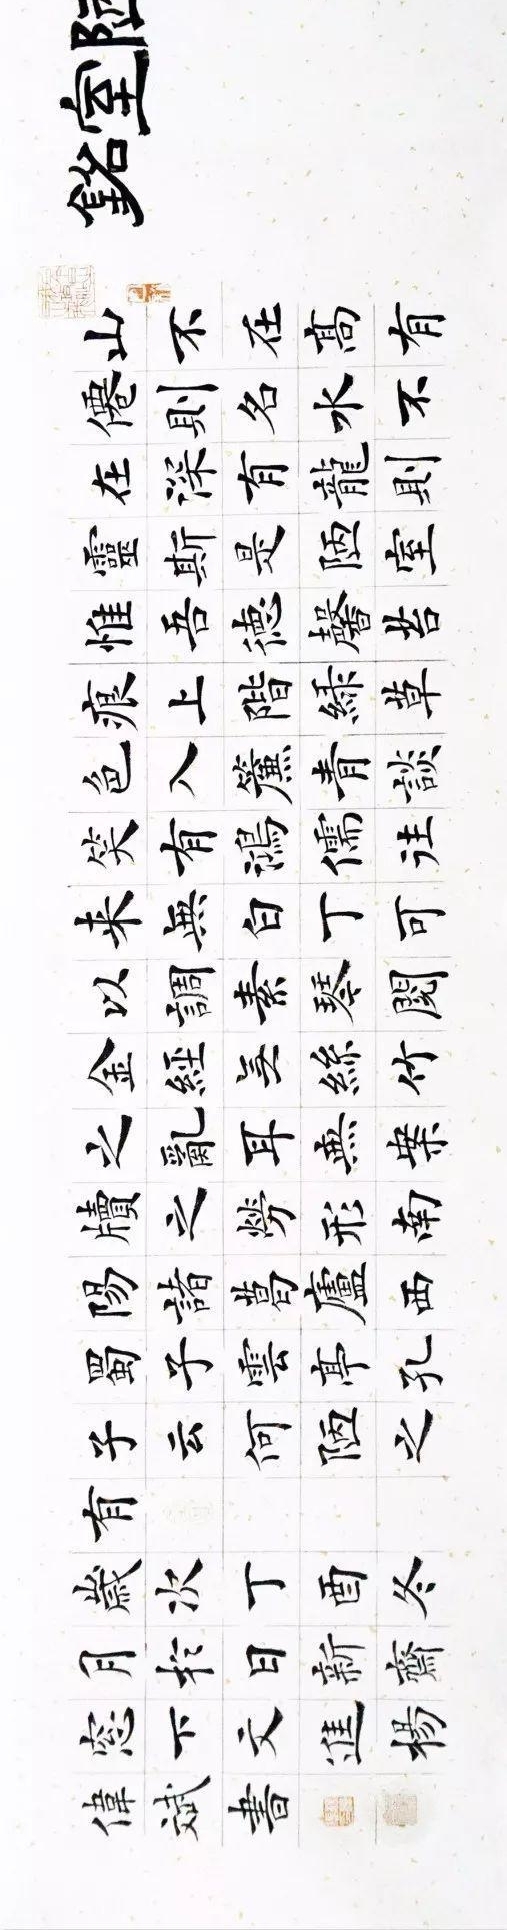 陋室銘
山不在高有
僊則名水不
在深有龍則
靈斯是陋室
惟吾德馨苔
痕上階緑草
色入簾青談
笑有鴻儒往
来無白丁可
以調素琴閱
金經无絲竹
之亂耳無案
牘之勞形南
陽諸葛廬西
蜀子雲亭孔
子云何陋之
有
歲次丁酉冬
月於日新齋
窓下文進楊
偉斌書